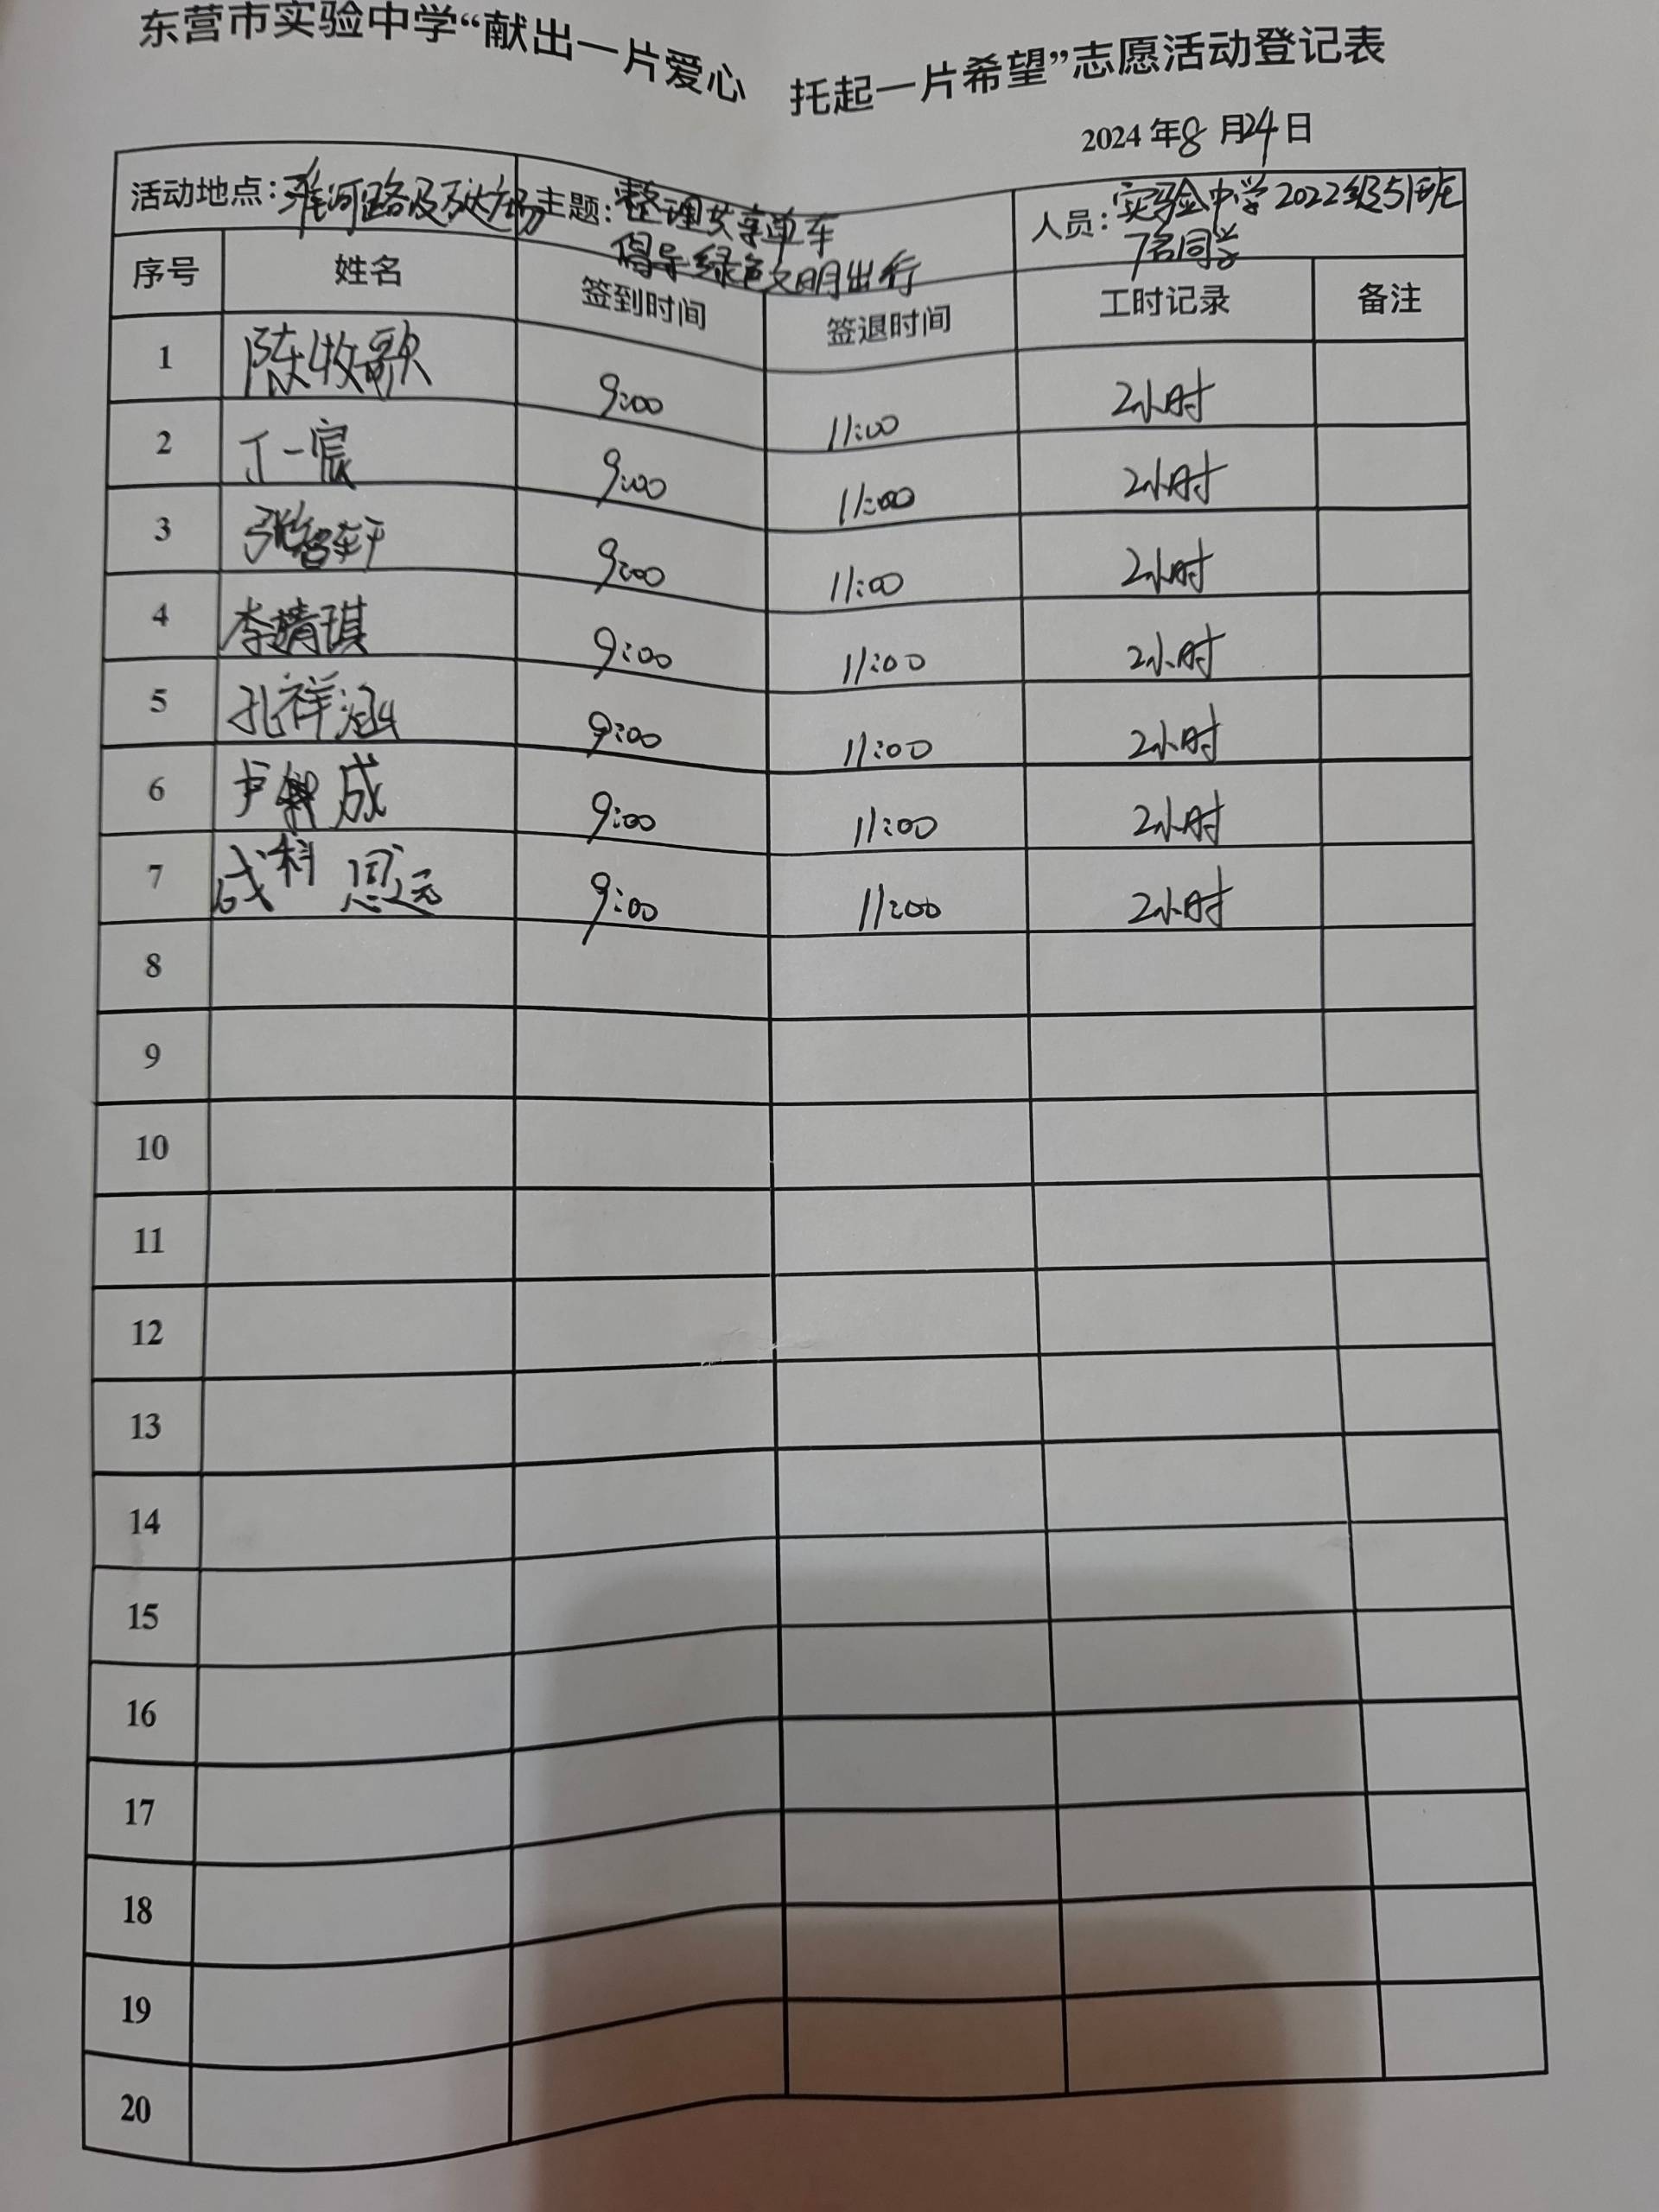 东营市实验中学“献出一片爱心 托起一片希望”志愿活动登记表
2024年8月24日
活动地点:淮河路及万达广场 主题:整理共享单车 人员:实验中学2022级51班
倡导绿色文明出行 7名同学
序号 姓名 签到时间 签退时间 工时记录 备注
1 陈牧歌 9:00 11:00 2小时
2 丁一宸 9:00 11:00 2小时
3 张智轩 9:00 11:00 2小时
4 李婧琪 9:00 11:00 2小时
5 孔祥涵 9:00 11:00 2小时
6 卢 成 9:00 11:00 2小时
7 思远 9:00 11:00 2小时
8
9
10
11
12
13
14
15
16
17
18
19
20